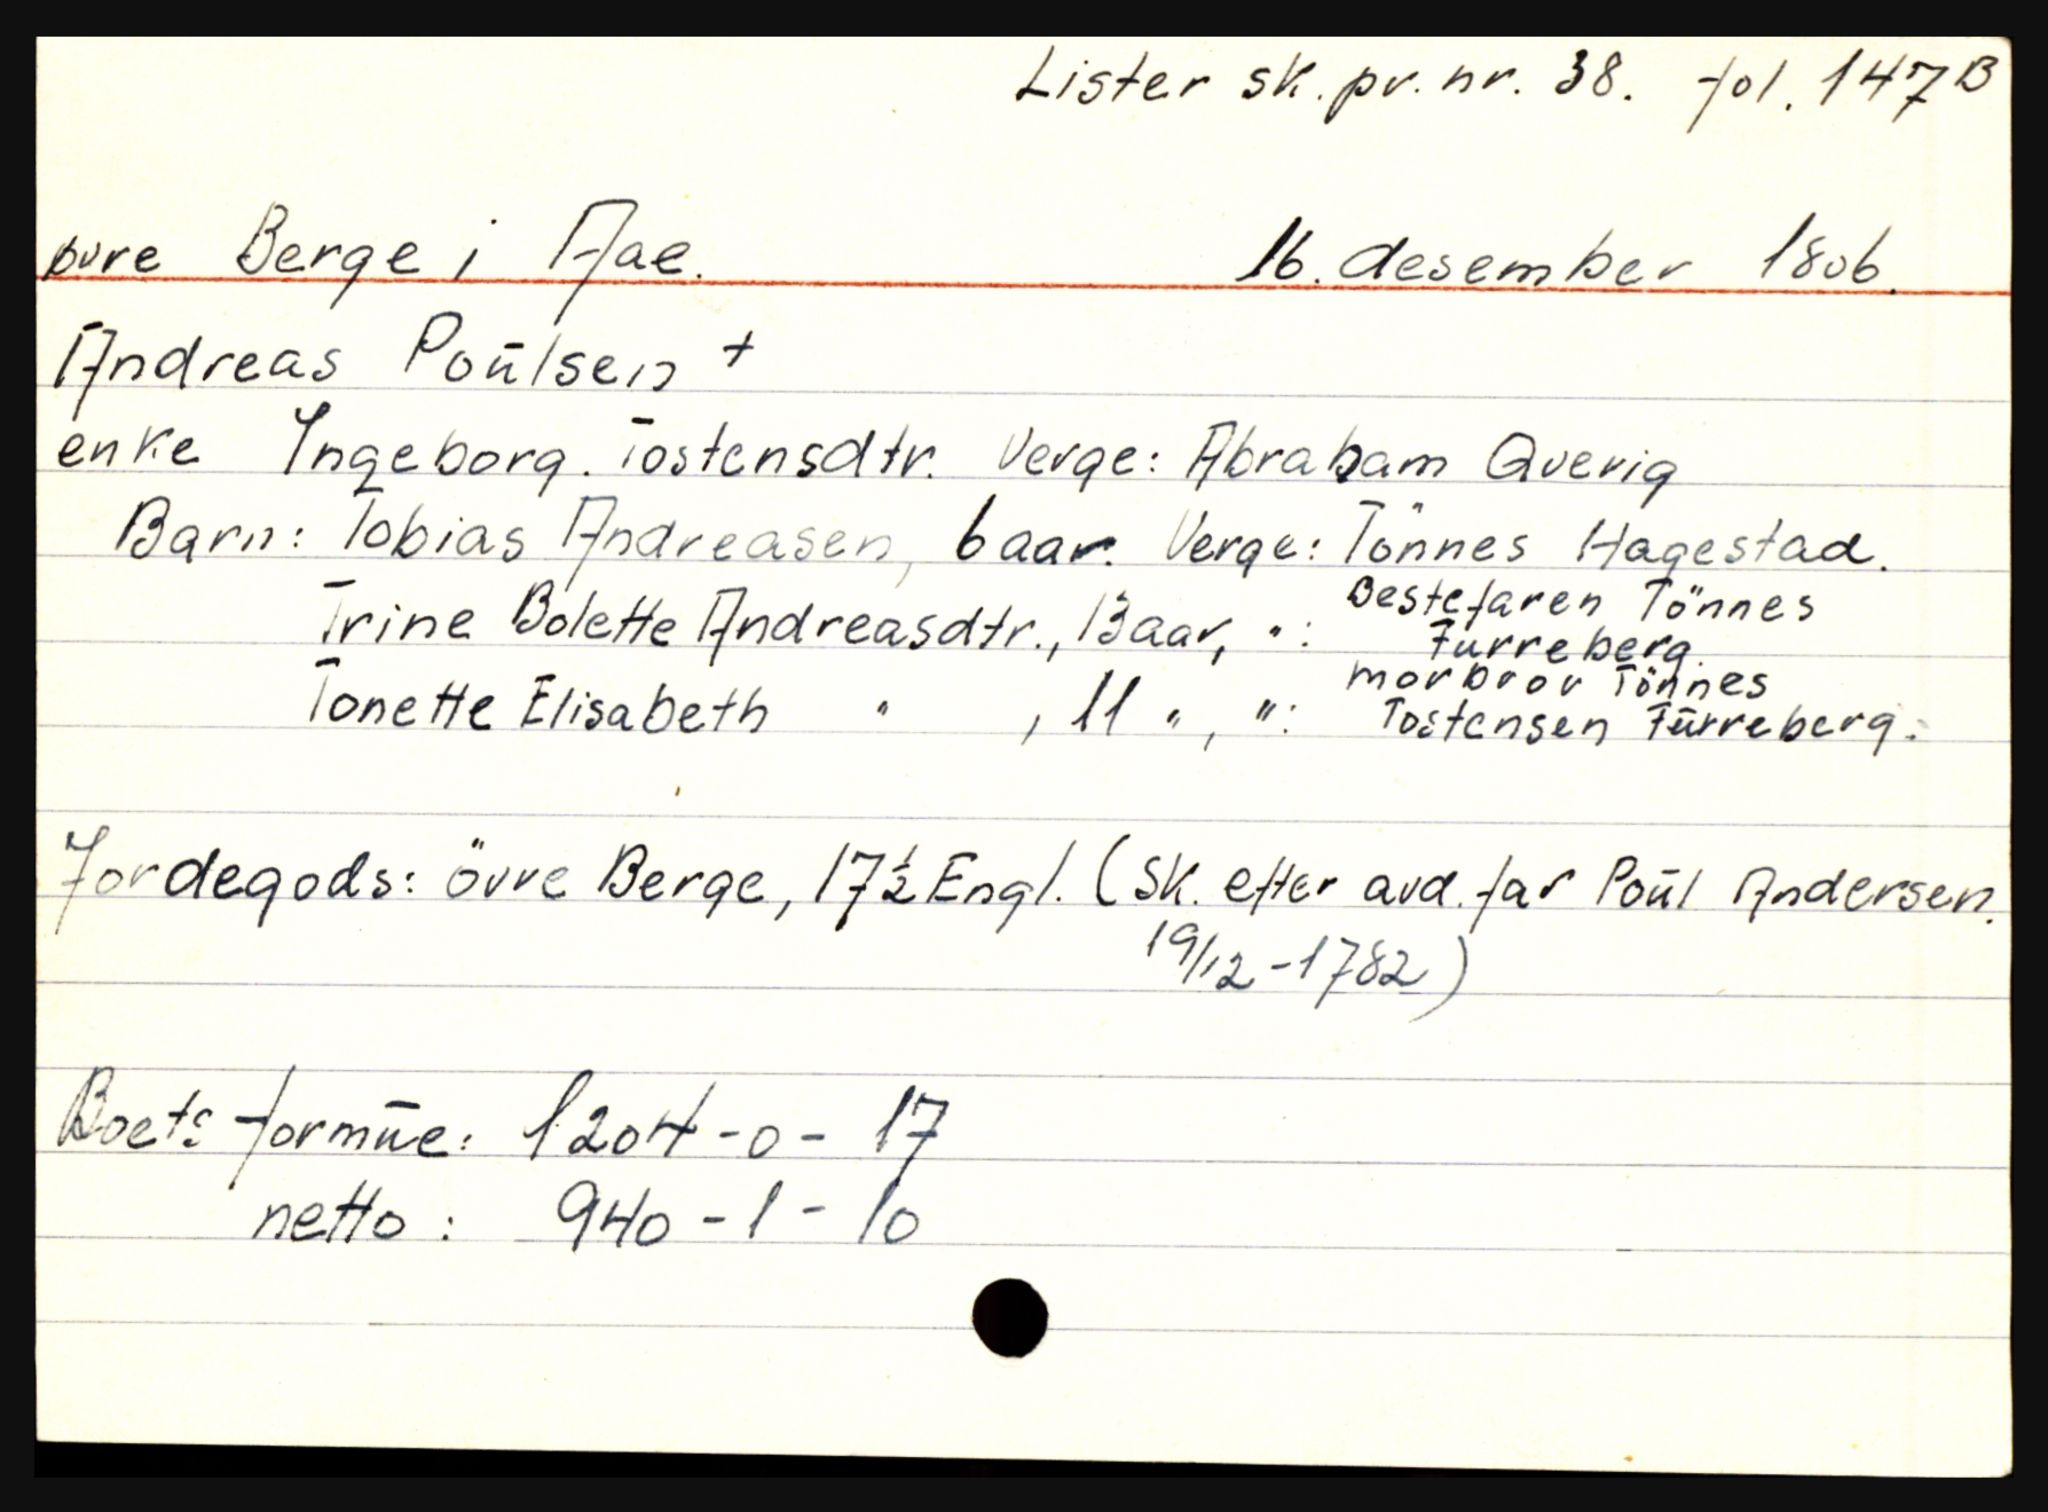 Lister sk. pr. nr. 38. fol. 147 B
øvre Berge i Aae. 16. desember 1806.
Andreas Poŭlsen +
enke Ingeborg Tostensdtr. Verge: Abraham Qverig
Barn: Tobias Andreasen, 6 aar. Verge: Tönnes Hagestad.
Trine Bolette Andreasdtr., 13 aar, ": Bestefaren Tönnes
Furreberg.
Tonette Elisabeth " , 11 " , ": morbror Tönnes
Tostensen Fŭrreberg.
Jordegods: övre Berge, 17 ½ Engl. (Sk. efter avd. far Poŭl Andersen.
19/12 - 1782)
Boets formŭe: 1204 - 0 - 17
netto: 940 - 1 - 10